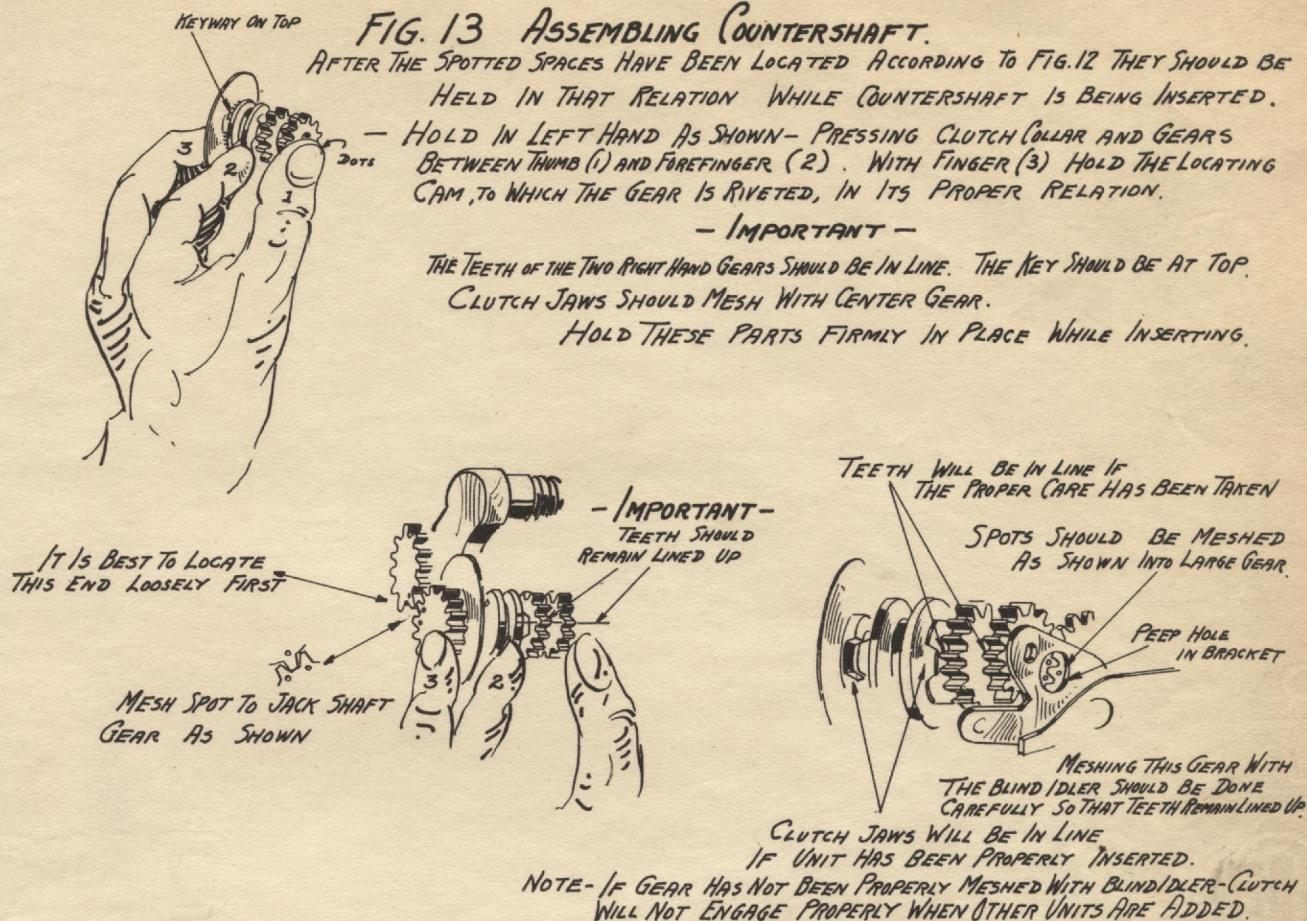 KEYWAY ON TOP
FIG. 13 ASSEMBLING COUNTERSHAFT.
AFTER THE SPOTTED SPACES HAVE BEEN LOCATED ACCORDING TO FIG.12 THEY SHOULD BE
HELD IN THAT RELATION WHILE COUNTERSHAFT IS BEING INSERTED.
— HOLD IN LEFT HAND AS SHOWN— PRESSING CLUTCH COLLAR AND GEARS
BETWEEN THUMB (1) AND FOREFINGER (2). WITH FINGER (3) HOLD THE LOCATING
CAM, TO WHICH THE GEAR IS RIVETED, IN ITS PROPER RELATION.
3
2
1
DOTS
— IMPORTANT —
THE TEETH OF THE TWO RIGHT HAND GEARS SHOULD BE IN LINE. THE KEY SHOULD BE AT TOP.
CLUTCH JAWS SHOULD MESH WITH CENTER GEAR.
HOLD THESE PARTS FIRMLY IN PLACE WHILE INSERTING.
— IMPORTANT —
TEETH SHOULD
REMAIN LINED UP
IT IS BEST TO LOCATE
THIS END LOOSELY FIRST
3
2
MESH SPOT TO JACK SHAFT
GEAR AS SHOWN
TEETH WILL BE IN LINE IF
THE PROPER CARE HAS BEEN TAKEN
SPOTS SHOULD BE MESHED
AS SHOWN INTO LARGE GEAR.
PEEP HOLE
IN BRACKET
MESHING THIS GEAR WITH
THE BLIND IDLER SHOULD BE DONE
CAREFULLY SO THAT TEETH REMAIN LINED UP.
CLUTCH JAWS WILL BE IN LINE
IF UNIT HAS BEEN PROPERLY INSERTED.
NOTE- IF GEAR HAS NOT BEEN PROPERLY MESHED WITH BLIND IDLER-CLUTCH
WILL NOT ENGAGE PROPERLY WHEN OTHER UNITS ARE ADDED.